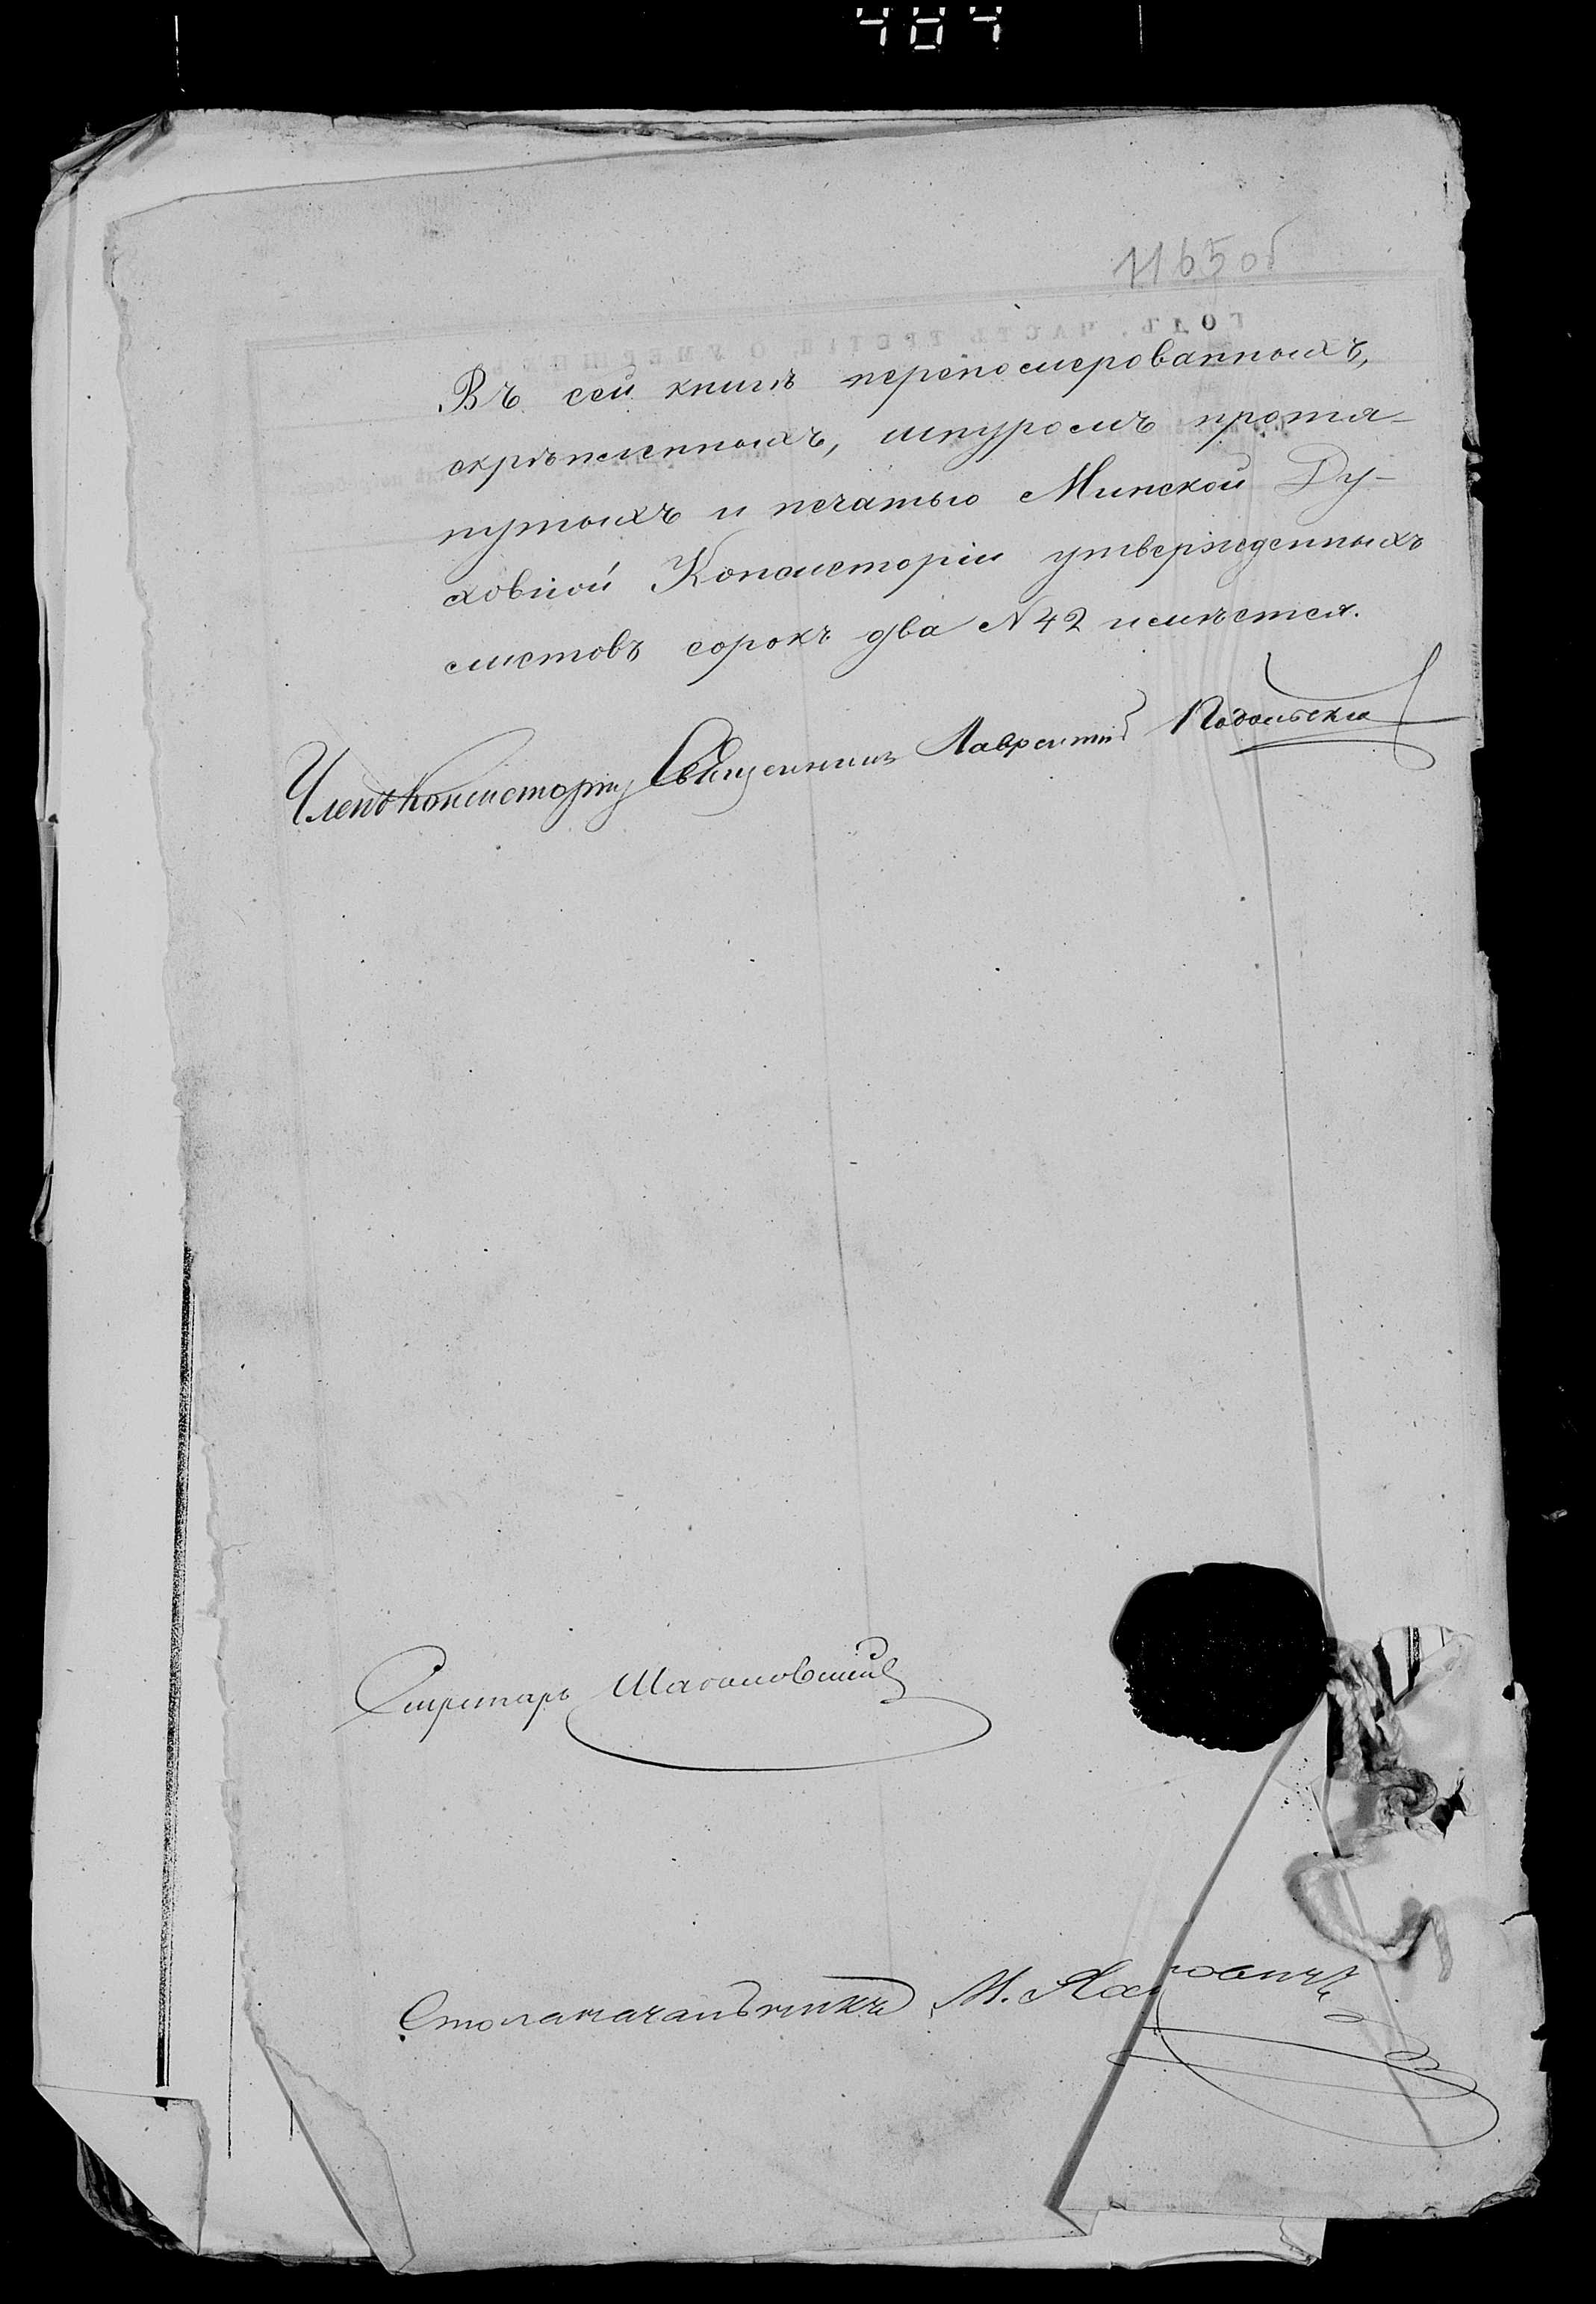 404
1165об
Въ сей книгѣ перенумерованныхъ,
скрѣпленныхъ, шнуромъ протя-
нутыхъ и печатью Минской Ду-
ховной Консисторіи утвержденныхъ
листовъ сорокъ два N 42 имѣется.
Членъ Консисторіи Священникъ Лаврентій Подольскій
Секретарь
Столоначальникъ М.